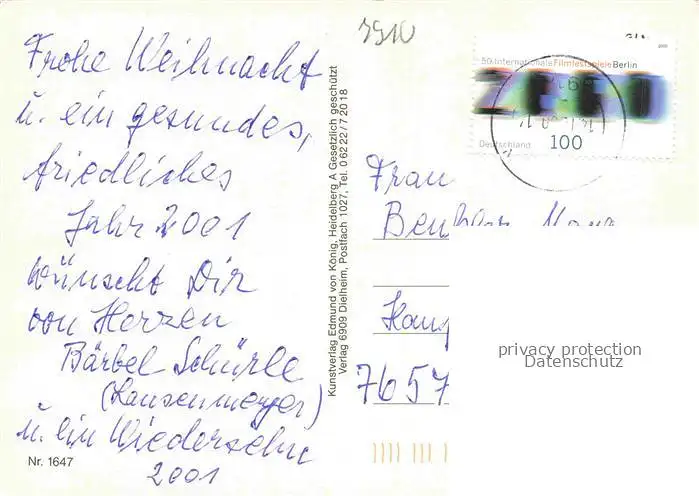 Frohe Weihnacht
u. ein gesundes,
friedliches
Jahr 2001
wünscht Dir
von Herzen
Bärbel Schürle
u. ein Wiedersehn
2001
Nr. 1647
Kunstverlag Edmund von König, Heidelberg A Gesetzlich geschützt
Verlag 6909 Dielheim, Postfach 1027, Tel. 0 62 22 / 7 20 18
50. Internationale Filmfestspiele Berlin
Deutschland 100
Frau
7657
privacy protection
Datenschutz